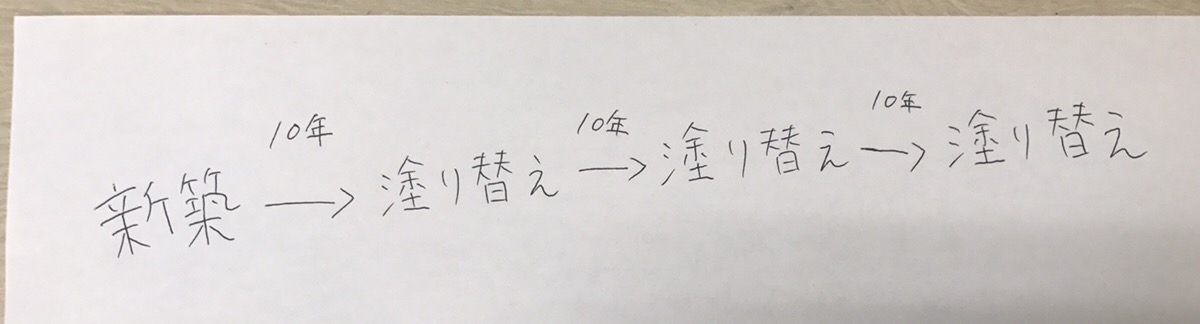 10年 10年 10年
新築 → 塗り替え → 塗り替え → 塗り替え